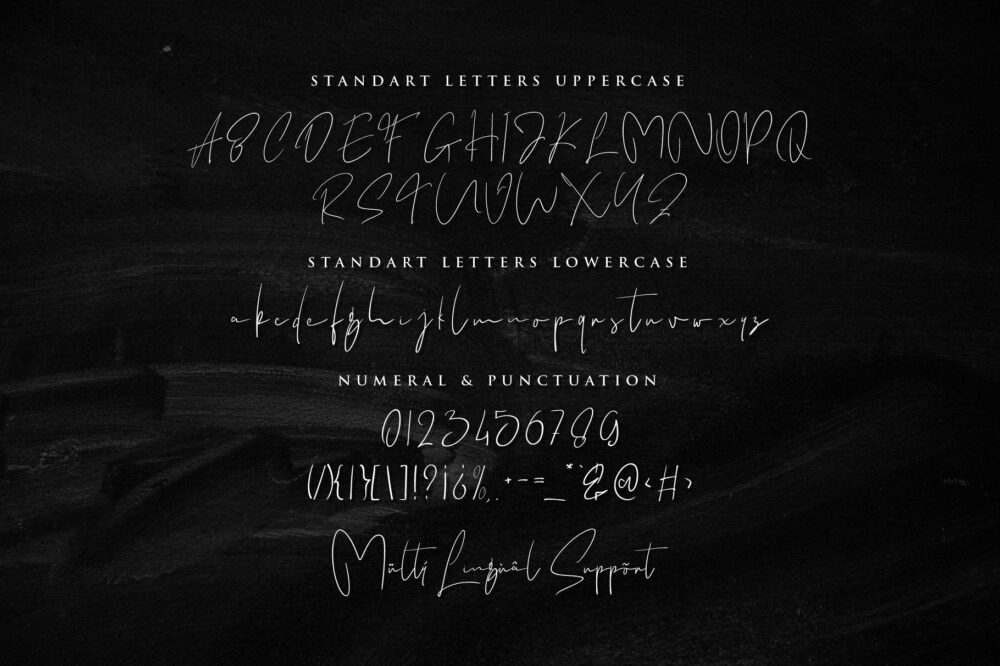 STANDART LETTERS UPPERCASE
ABCDEFGHIJKLMNOPQ
RSTUVWXYZ
STANDART LETTERS LOWERCASE
abcdefghijklmnopqrstuvwxyz
NUMERAL & PUNCTUATION
0123456789
(/){|}[\]!?¡¿%,.+-–=_*`&@‹#›
Múltï Língùâl Suppõrt